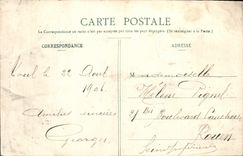 CARTE POSTALE
La Correspondance au recto n'est pas acceptée par tous les pays étrangers. (Se renseigner à la Poste)
CORRESPONDANCE
ADRESSE
le 22 Aout
1906
Mademoiselle
Hélène
Amitiés sincères
Boulevard
Georges
Rouen